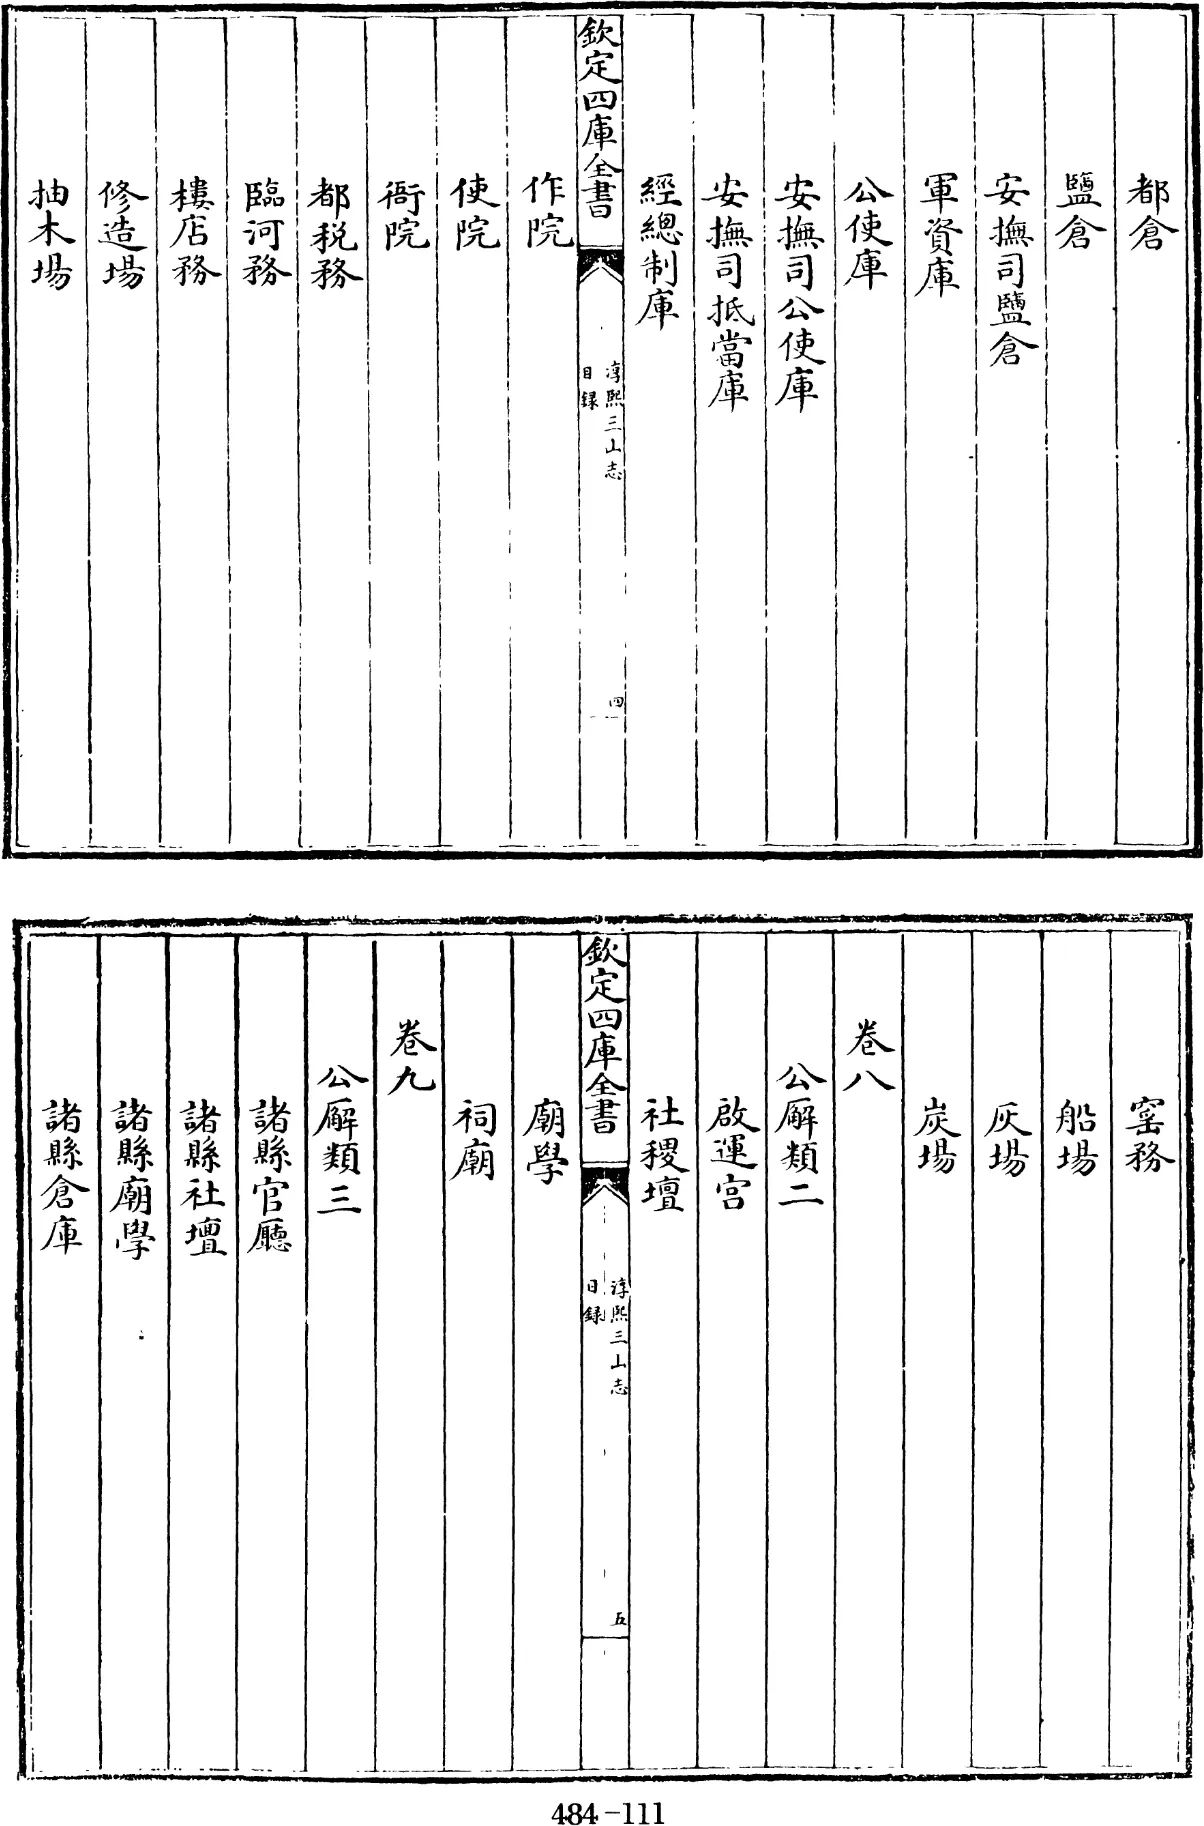 都倉
鹽倉
安撫司鹽倉
軍資庫
公使庫
安撫司公使庫
安撫司抵當庫
經總制庫
欽定四庫全書
淳熙三山志
目錄
四
作院
使院
衙院
都税務
臨河務
樓店務
修造場
抽木場
窑務
船場
灰場
炭場
卷八
公廨類二
啟運宫
社稷壇
欽定四庫全書
淳熙三山志
目錄
五
廟學
祠廟
卷九
公廨類三
諸縣官廳
諸縣社壇
諸縣廟學
諸縣倉庫
484-111